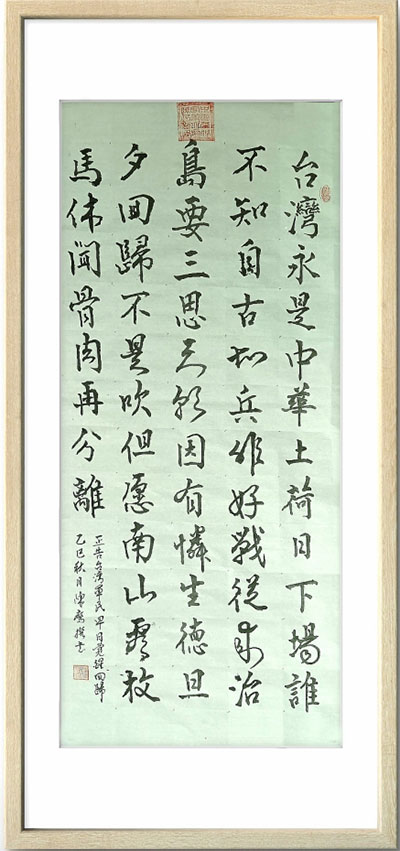 台灣永是中華土荷日下場誰
不知自古知兵非好戰從来治
島要三思天因有憐生德旦
夕回歸不是吹但愿南山
馬休聞骨肉再分離
正告台灣軍民早日覺醒回歸
乙巳秋月陳撰書